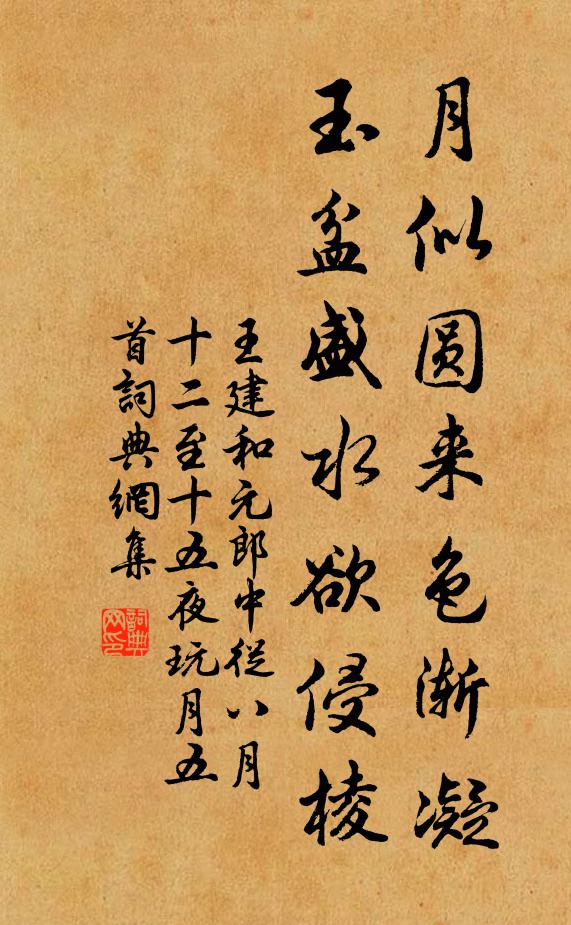 月似圆来色渐凝
玉盆盛水欲侵棱
王建和元郎中從八月
十二至十五夜玩月五
首詞典網集
詞典
网印